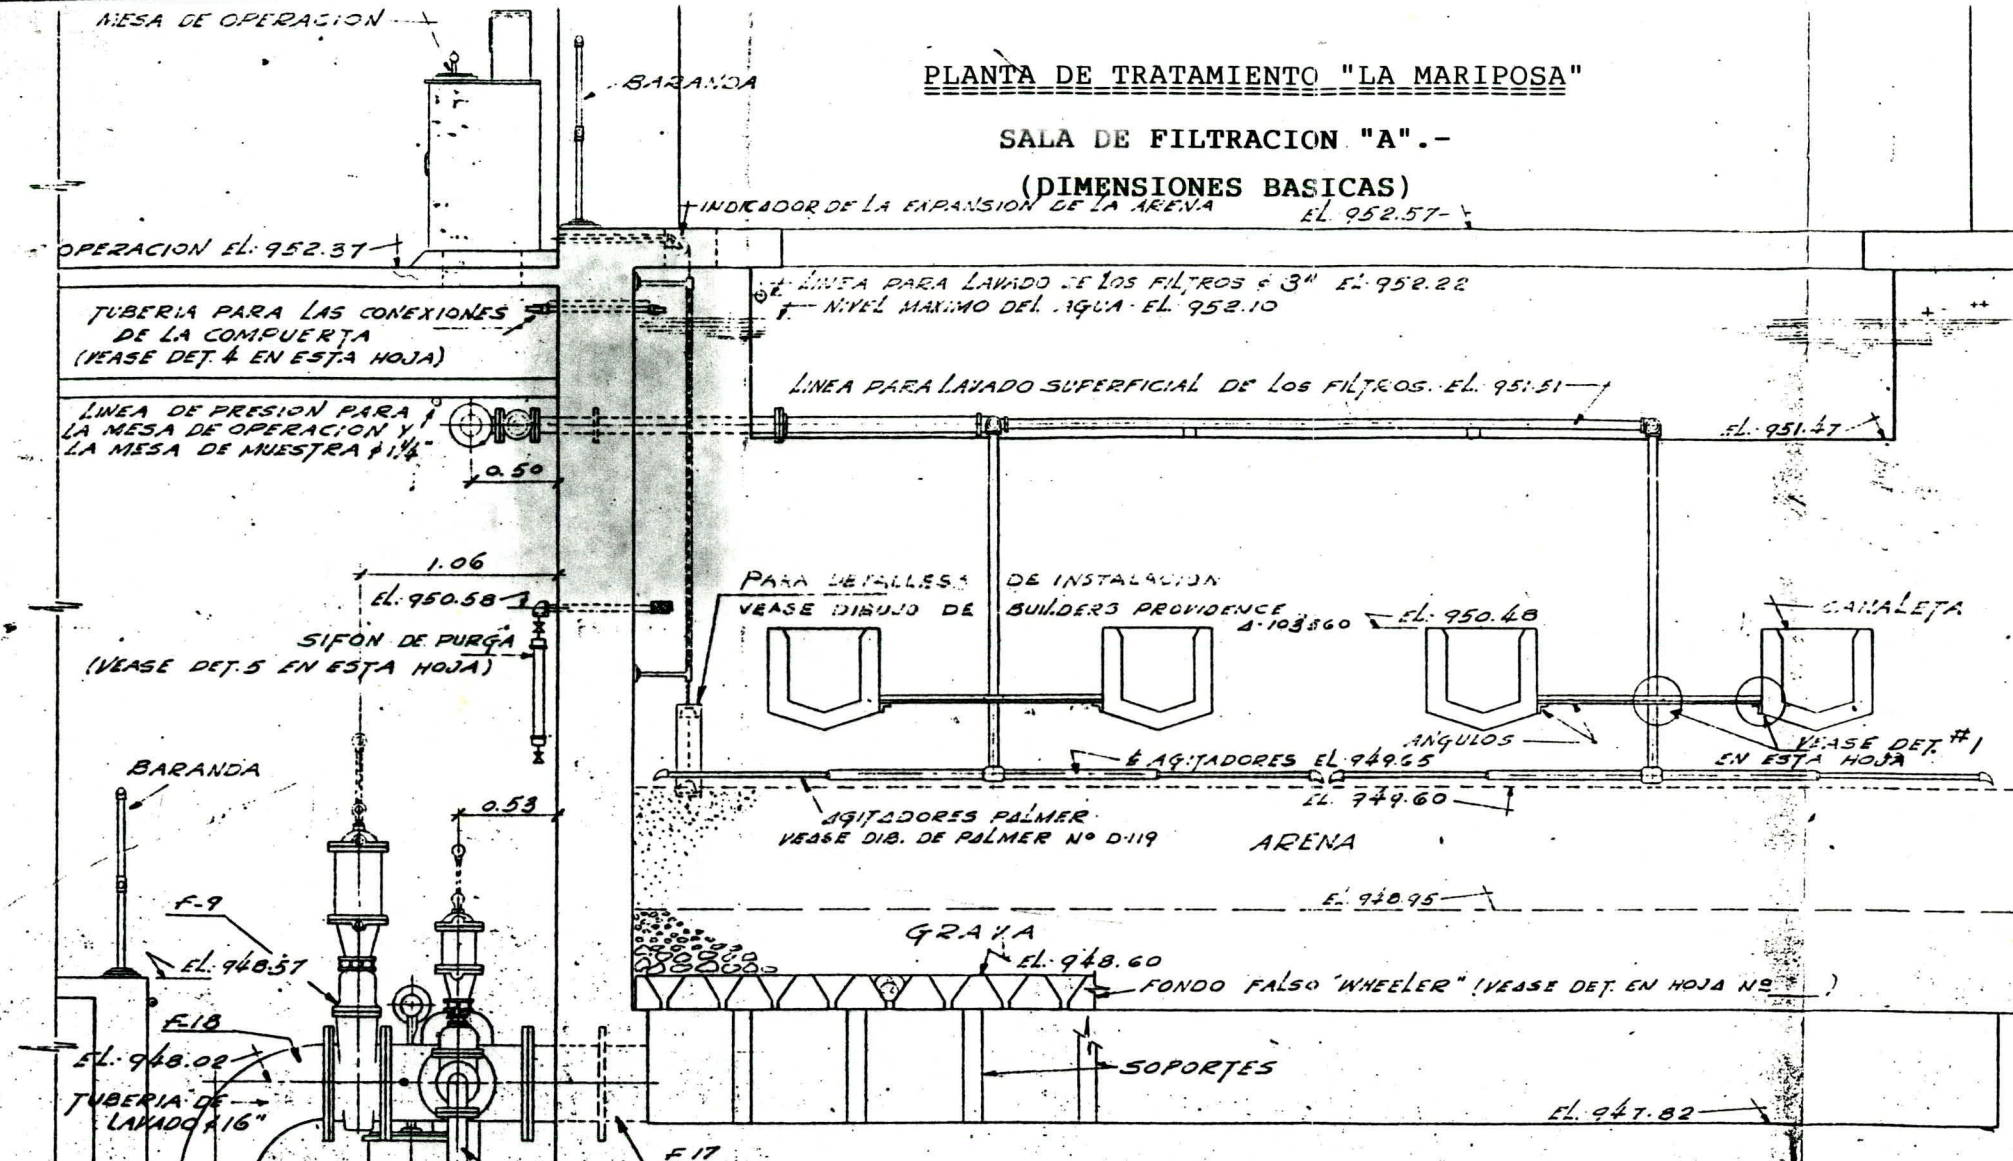 MESA DE OPERACION
BARANDA
PLANTA DE TRATAMIENTO "LA MARIPOSA"
SALA DE FILTRACION "A".-
(DIMENSIONES BASICAS)
INDICADOR DE LA EXPANSION DE LA ARENA
EL. 952.57
OPERACION EL. 952.37
LINEA PARA LAVADO DE LOS FILTROS ¢ 3" EL. 952.22
NIVEL MAXIMO DEL AGUA - EL. 952.10
TUBERIA PARA LAS CONEXIONES
DE LA COMPUERTA
(VEASE DET. 4 EN ESTA HOJA)
LINEA PARA LAVADO SUPERFICIAL DE LOS FILTROS. EL. 951.51
LINEA DE PRESION PARA
LA MESA DE OPERACION Y
LA MESA DE MUESTRA ¢ 1¼"
EL. 951.47
0.50
1.06
EL. 950.58
PARA DETALLES DE INSTALACION
VEASE DIBUJO DE BUILDERS PROVIDENCE
EL. 950.48
CANALETA
SIFON DE PURGA
(VEASE DET. 5 EN ESTA HOJA)
ANGULOS
VEASE DET. #1
EN ESTA HOJA
AGITADORES EL. 949.65
EL. 949.60
BARANDA
0.53
AGITADORES PALMER
VEASE DIB. DE PALMER Nº D-119
ARENA
F-9
EL. 948.95
GRAVA
EL. 948.57
EL. 948.60
FONDO FALSO "WHEELER" (VEASE DET. EN HOJA Nº ___ )
F-18
EL. 948.02
SOPORTES
TUBERIA DE
LAVADO ¢ 16"
EL. 947.82
F-17